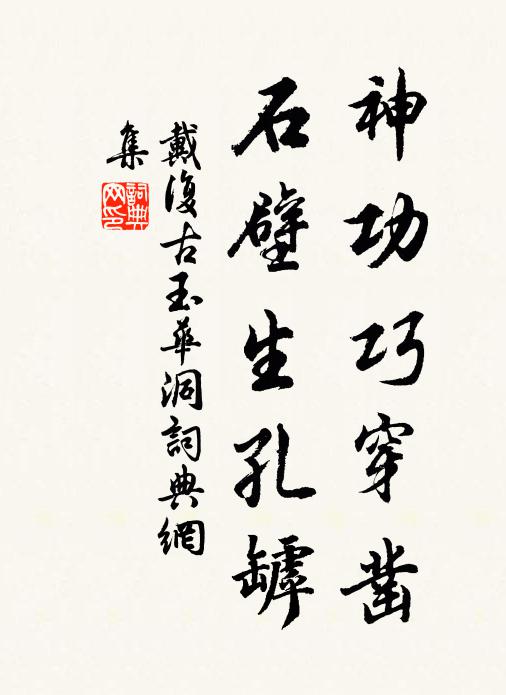 神功巧穿凿
石壁生孔罅
戴復古玉華洞詞典網
集
詞典網印